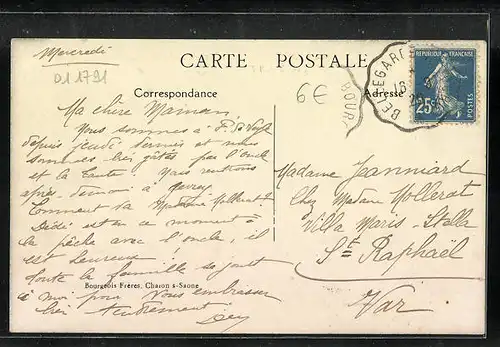 Mercredi
D11791
CARTE POSTALE
Correspondance
6€
Adresse
BELLEGARDE
BOURG
RÉPUBLIQUE FRANÇAISE
25c
POSTES
Ma chère Maman
Nous sommes à
depuis jeudi dernier et nous
sommes très gâtés par l'oncle
et la tante. Nous rentrons
après-demain à
Comment va Madame Mollerat?
Dédé est en ce moment à
la pêche avec l'oncle, il
est heureux!
Toute la famille se joint
à moi pour vous embrasser
bien tendrement
Madame Jeanniard
Chez Madame Mollerat
Villa Maris-Stella
St Raphaël
Var
Bourgeois Frères, Chalon s-Saone